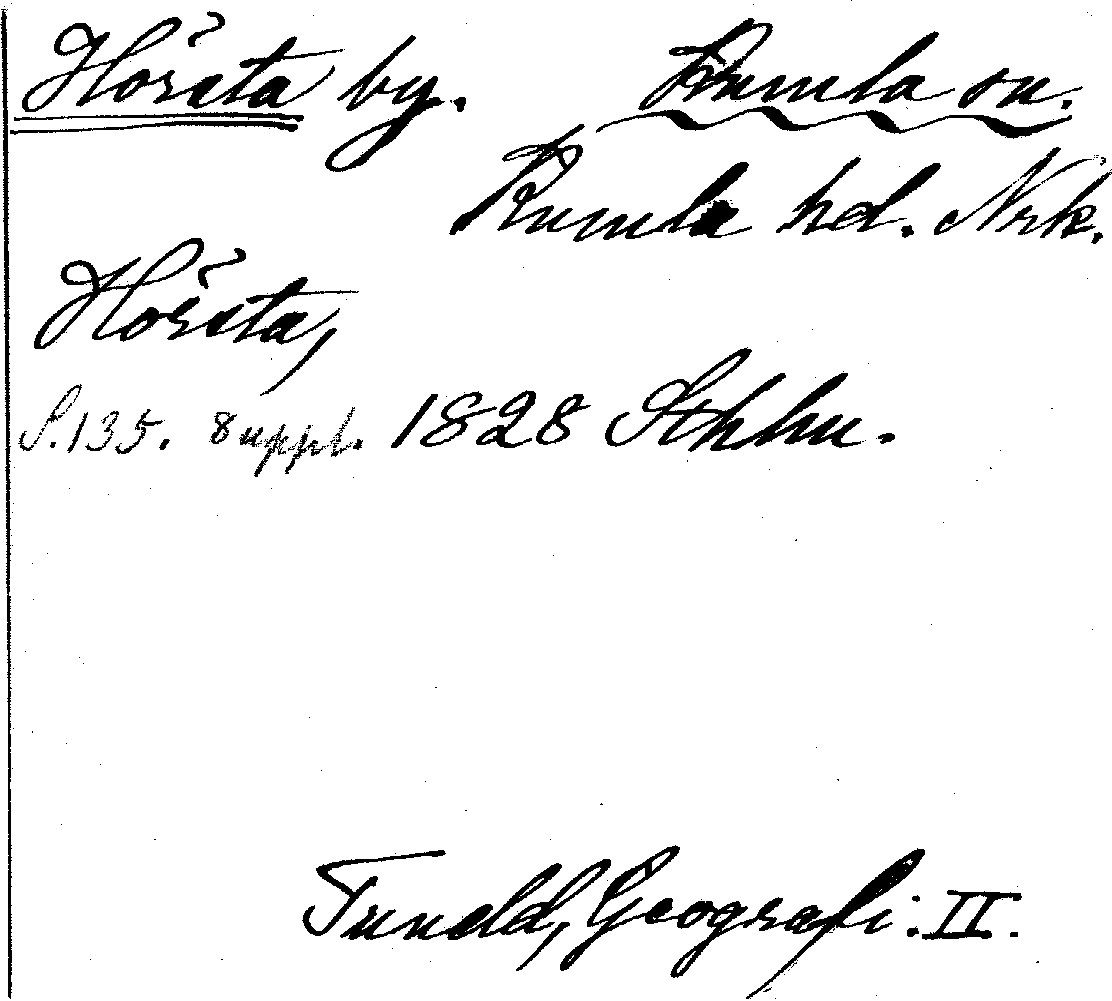 Hörsta by. Kumla sn.
Kumla hd. Nrk.
Hörsta,
S.135. Suppl. 1828 Sthlm.
Tuneld, Geografi: II.